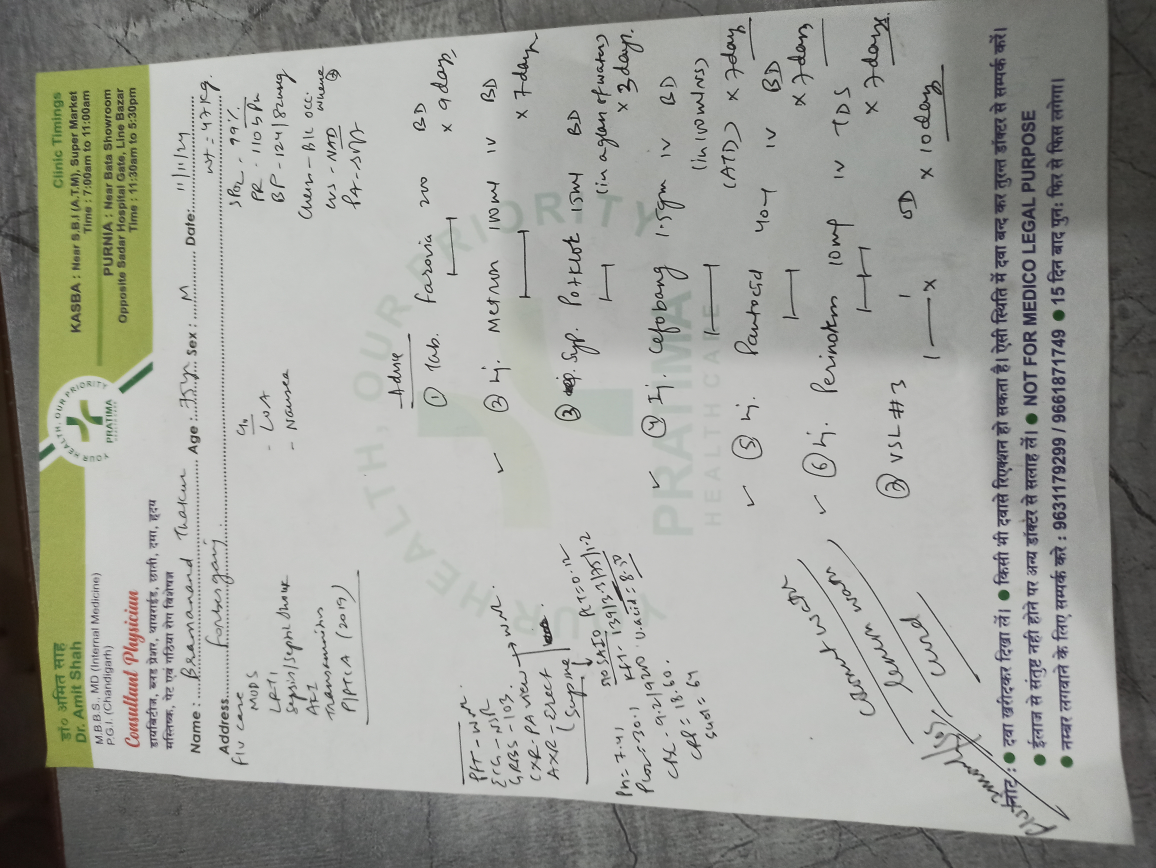 डॉ० अमित साह
Dr. Amit Shah
M.B.B.S., MD (Internal Medicine)
P.G.I. (Chandigarh)
Consultant Physician
डायबिटीज, ब्लड प्रेशर, थायराईड, छाती, दमा, हृदय
मस्तिष्क, पेट एवं गठिया रोग विशेषज्ञ
YOUR HEALTH, OUR PRIORITY
PRATIMA
HEALTH CARE
Clinic Timings
KASBA : Near S.B.I (A.T.M), Super Market
Time : 7:00am to 11:00am
PURNIA : Near Bata Showroom
Opposite Sadar Hospital Gate, Line Bazar
Time : 11:30am to 5:30pm
Name : Bramanand Thakur Age : 75yr Sex : M Date: 11/11/24
Address Forbesganj
wt = 47 kg
F/U case
MODS
LRTI
Sepsis/septic shock
AKI
Transaminitis
P/PTCA (2017)
C/o
- LOA
- Nausea
SPO2 - 99%
PR - 110 bpm
BP - 124/82mmHg
Chest - B/L occ.
wheeze
CVS - NAD
PA - Soft
Advise
① Tab. Farovia 200 BD
x 9 days
② Inj. Metron 100ml IV BD
x 7 days
③ Syp. Potklor 15ml BD
(in a glass of water)
x 3 days
④ Inj. Cefobang 1.5gm IV BD
(in 100ml NS)
(ATD) x 7 days
⑤ Inj. Pantocid 40 IV BD
x 7 days
⑥ Inj. Perinorm 10mg IV TDS
x 7 days
⑦ VSL#3 1 — x 1 OD x 10 days
ECG - NSR
GRBS - 103
CXR - PA view
AXR - Erect
Supine
PH = 7.41
U.acid = 8.
coconut water
lemon water
curd
YOUR HEALTH, OUR PRIORITY
PRATIMA
HEALTH CARE
नोट : ● दवा खरीदकर दिखा लें। ● किसी भी दवासे रिएक्शन हो सकता है। ऐसी स्थिति में दवा बन्द कर तुरन्त डॉक्टर से सम्पर्क करें।
● ईलाज से संतुष्ट नही होने पर अन्य डॉक्टर से सलाह लें। ● NOT FOR MEDICO LEGAL PURPOSE
● नम्बर लगवाने के लिए सम्पर्क करे : 9631179299 / 9661871749 ● 15 दिन बाद पुन: फिर से फिस लगेगा।